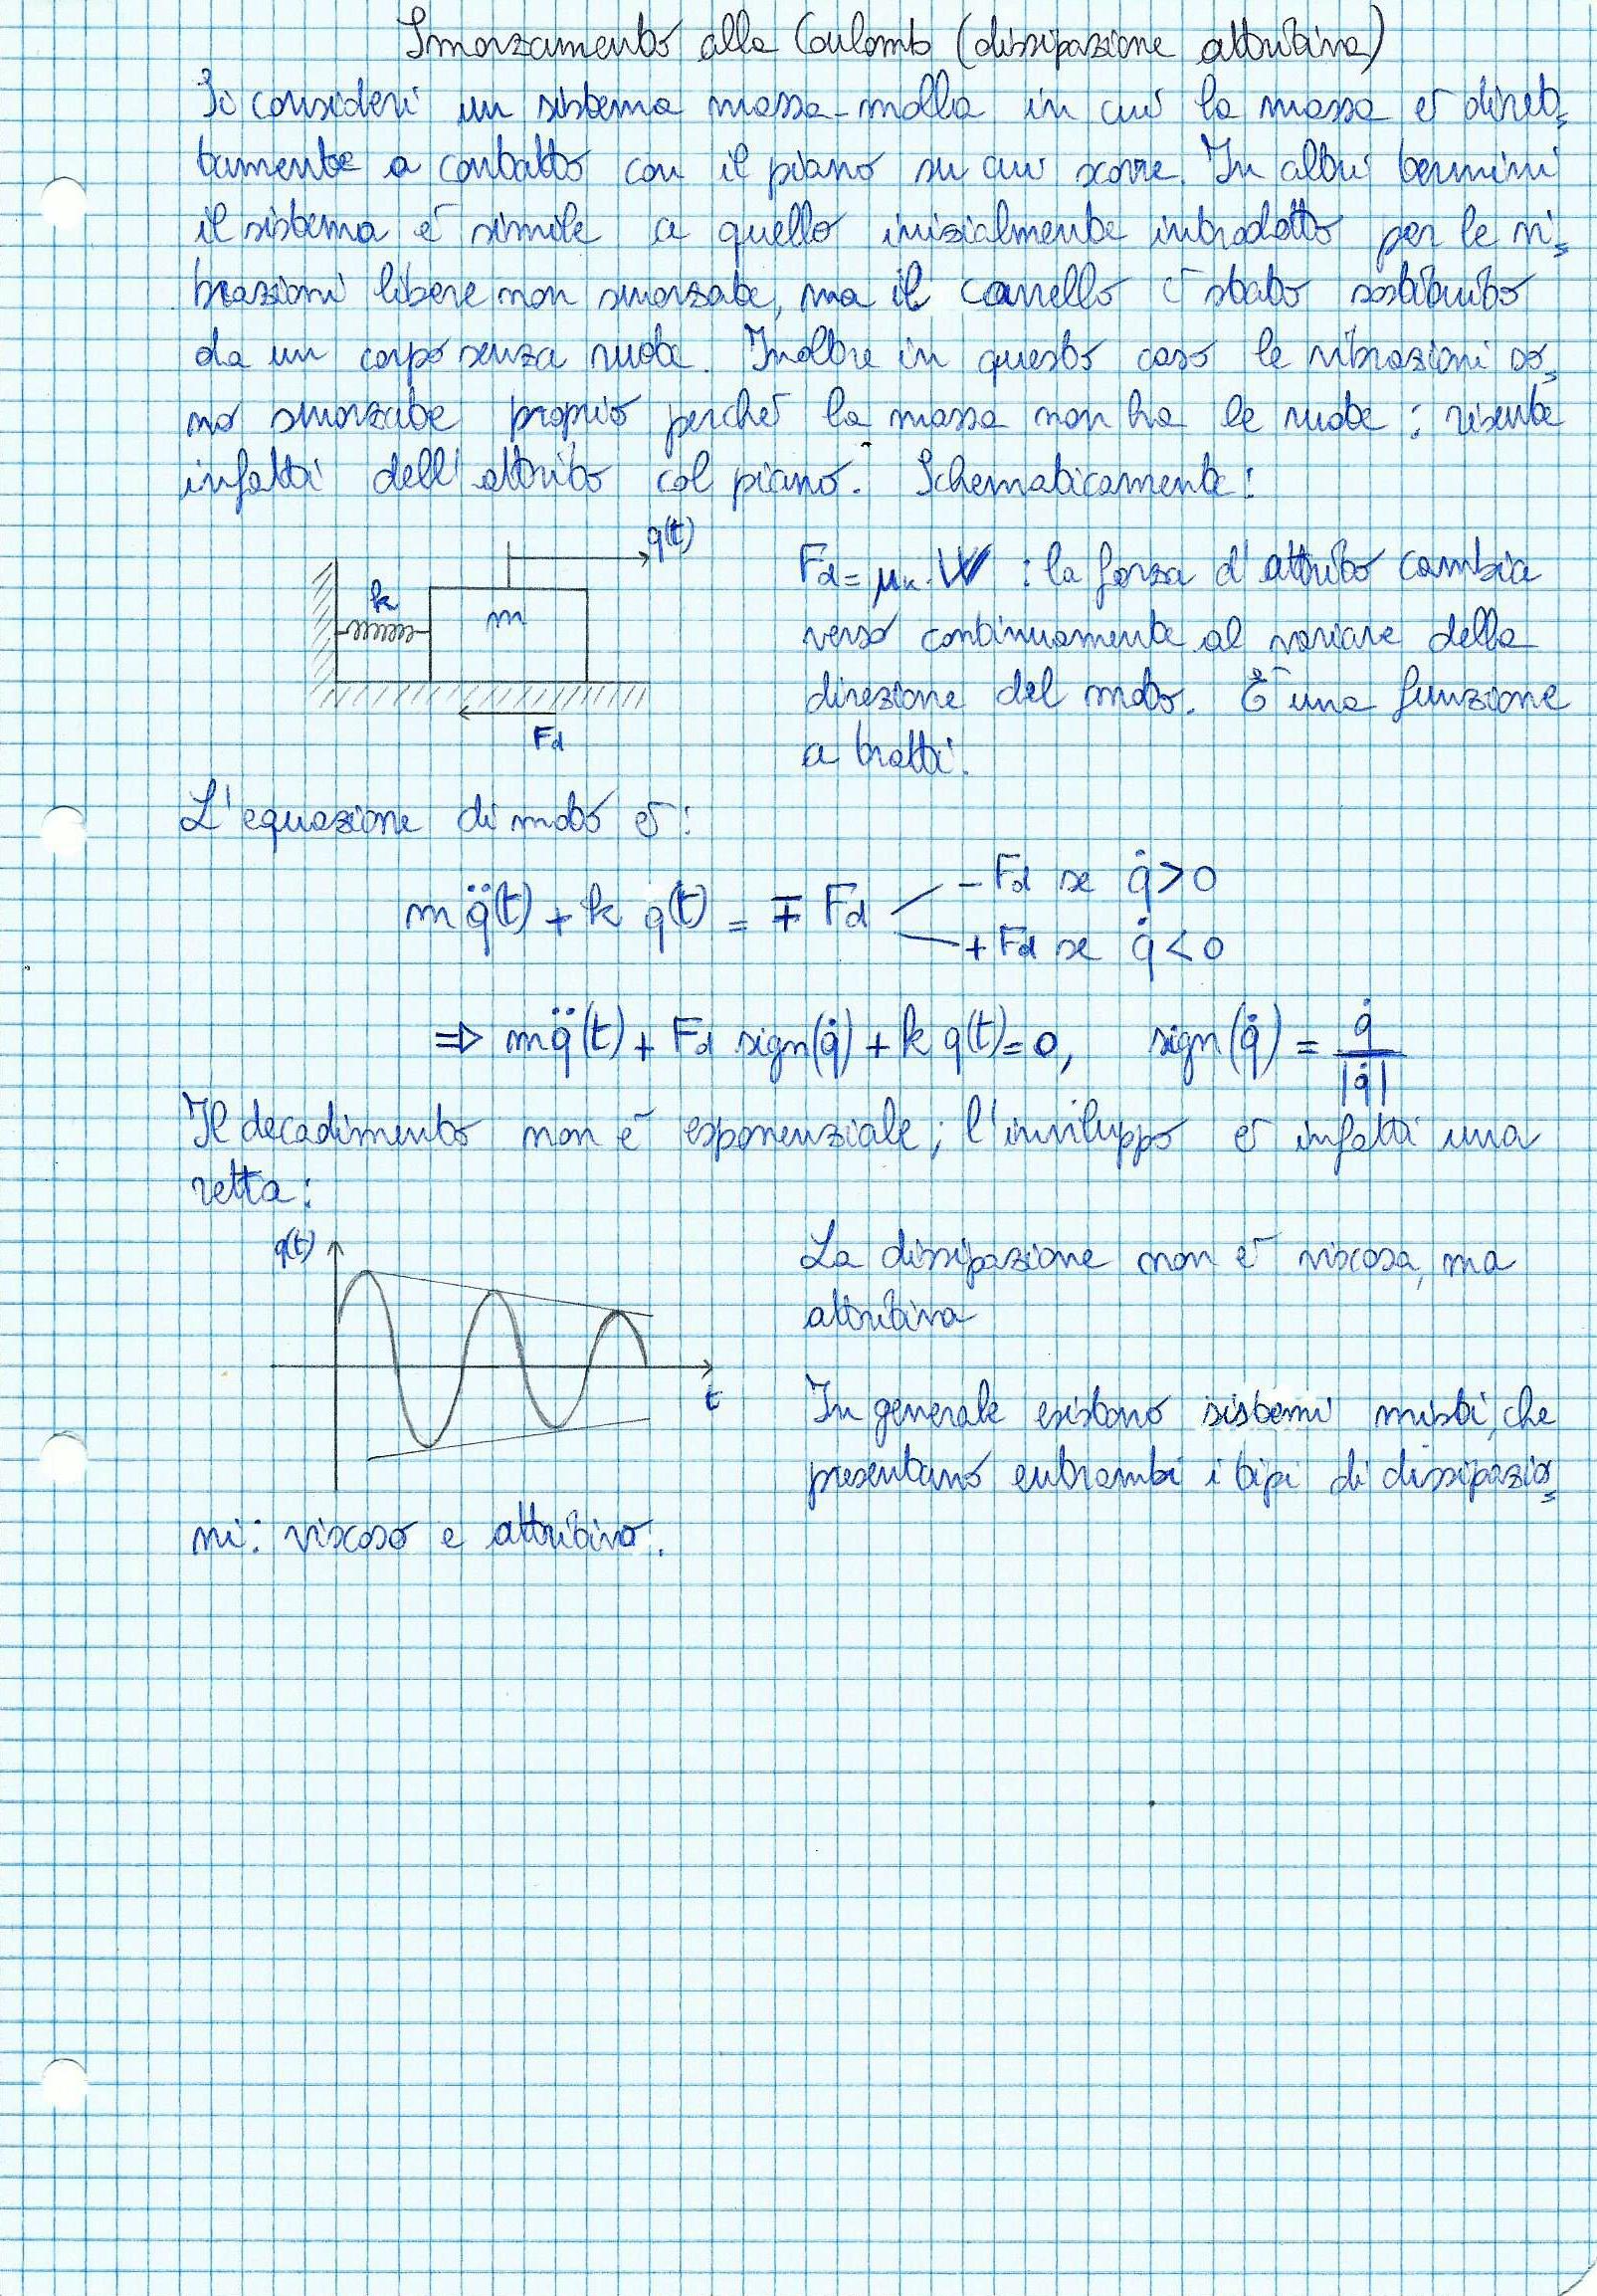 Smorzamento alla Coulomb (dissipazione attritiva)
Si consideri un sistema massa-molla in cui la massa è diret=
tamente a contatto con il piano su cui scorre. In altri termini
il sistema è simile a quello inizialmente introdotto per le vi=
brazioni libere non smorzate, ma il carrello è stato sostituito
da un corpo senza ruote. Inoltre in questo caso le vibrazioni so=
no smorzate proprio perché la massa non ha le ruote: risente
infatti dell'attrito col piano. Schematicamente:
q(t)
k
m
Fd
Fd = μk·W : la forza d'attrito cambia
verso continuamente al variare della
direzione del moto. È una funzione
a tratti.
L'equazione di moto è:
m q̈(t) + k q(t) = ∓ Fd
- Fd se q̇ > 0
+ Fd se q̇ < 0
⇒ m q̈(t) + Fd sign(q̇) + k q(t) = 0, sign(q̇) = q̇ / |q̇|
Il decadimento non è esponenziale; l'inviluppo è infatti una
retta:
q(t)
t
La dissipazione non è viscosa, ma
attritiva
In generale esistono sistemi misti, che
presentano entrambi i tipi di dissipazio=
ni: viscoso e attritivo.